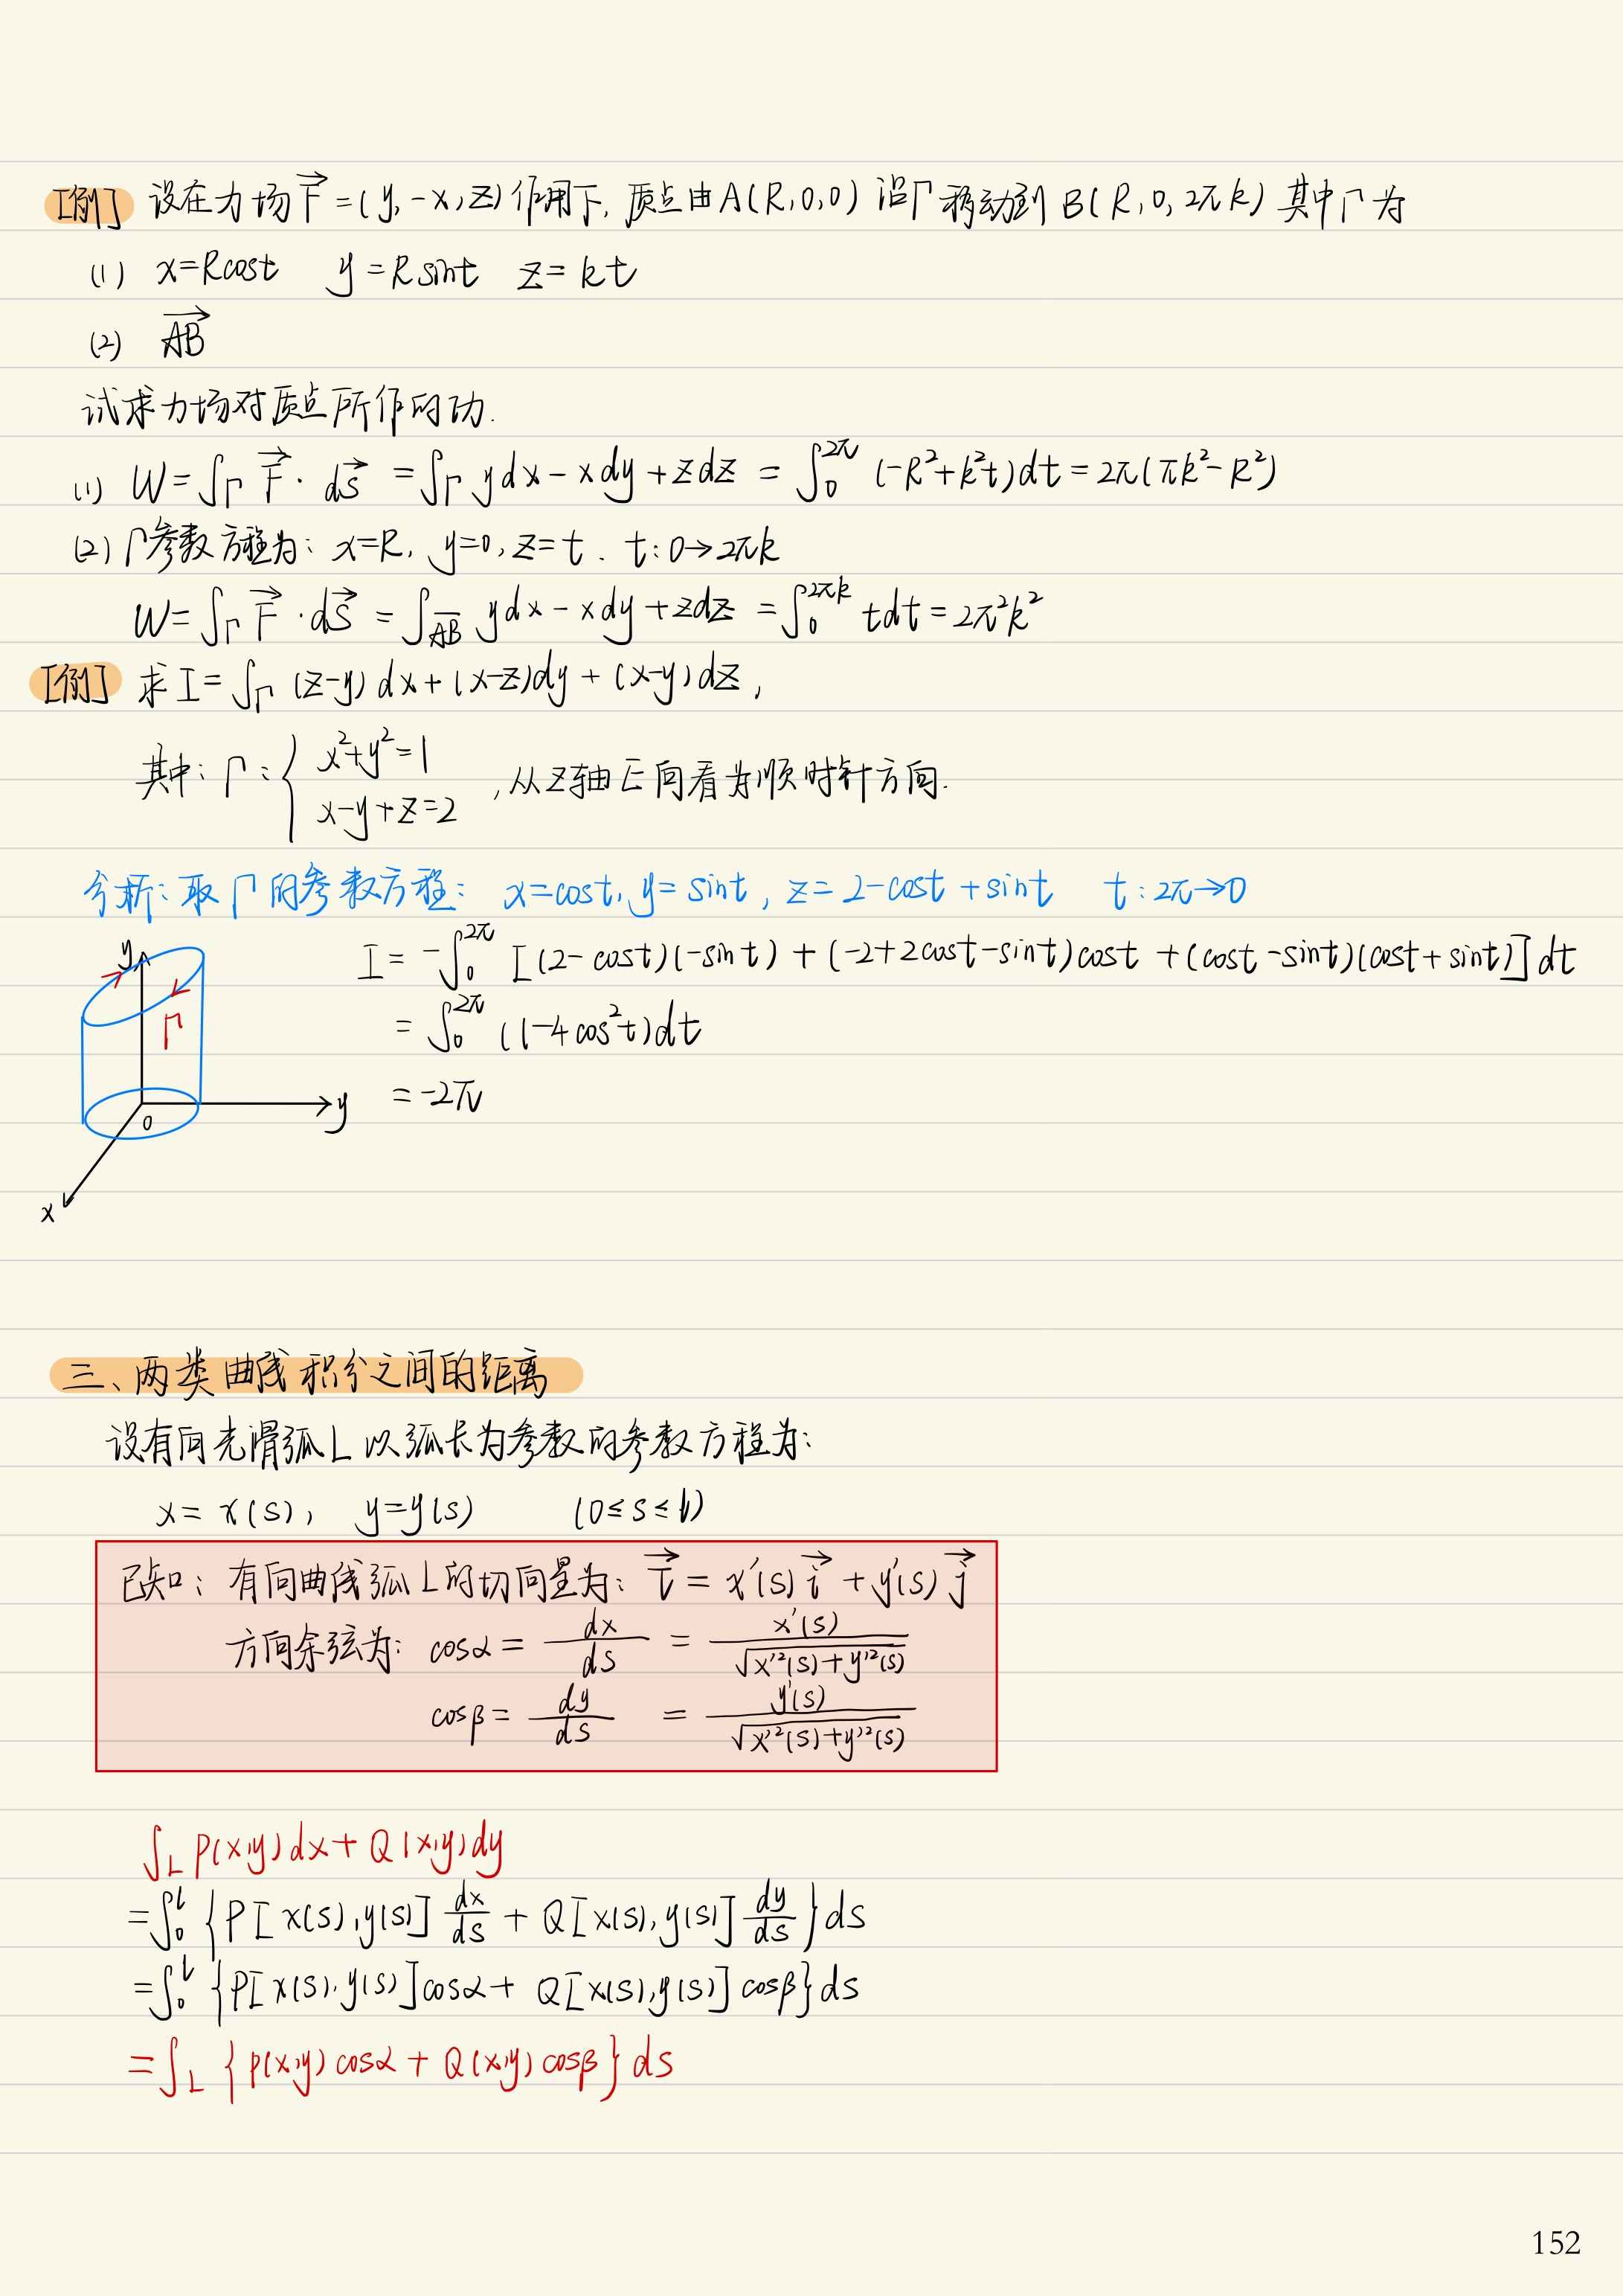 [例] 设在力场 F⃗ = (y, -x, z) 作用下, 质点由 A(R,0,0) 沿Γ移动到 B(R,0,2πk) 其中Γ为
(1) x=Rcost y=Rsint z=kt
(2) A⃗B⃗
试求力场对质点所作的功.
(1) W=∫Γ F⃗·ds⃗ =∫Γ ydx-xdy+zdz = ∫₀^{2π} (-R²+k²t)dt = 2π(πk²-R²)
(2) Γ参数方程为: x=R, y=0, z=t. t:0→2πk
W=∫Γ F⃗·ds⃗ = ∫_{AB} ydx-xdy+zdz = ∫₀^{2πk} tdt = 2π²k²
[例] 求 I=∫Γ (z-y)dx+(x-z)dy+(x-y)dz,
其中: Γ: { x²+y²=1
x-y+z=2 , 从z轴正向看为顺时针方向.
分析: 取Γ的参数方程: x=cost, y=sint, z=2-cost+sint t:2π→0
I = -∫₀^{2π} [(2-cost)(-sint)+(-2+2cost-sint)cost+(cost-sint)(cost+sint)]dt
= ∫₀^{2π} (1-4cos²t)dt
= -2π
y
Γ
o
y
x
三、两类曲线积分之间的距离
设有向光滑弧L以弧长为参数的参数方程为:
x=x(s), y=y(s) (0≤s≤l)
已知: 有向曲线弧L的切向量为: τ⃗ = x′(s)i⃗ + y′(s)j⃗
方向余弦为: cosα = dx/ds = x′(s)/√(x′²(s)+y′²(s))
cosβ = dy/ds = y′(s)/√(x′²(s)+y′²(s))
∫_L P(x,y)dx+Q(x,y)dy
=∫₀^l {P[x(s),y(s)] dx/ds + Q[x(s),y(s)] dy/ds}ds
=∫₀^l {P[x(s),y(s)]cosα + Q[x(s),y(s)]cosβ}ds
=∫_L {P(x,y)cosα+Q(x,y)cosβ}ds
152